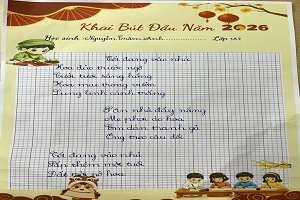 Khai Bút Đầu Năm 2026
Học sinh: Nguyễn Trâm Anh Lớp
Tết đang vào nhà
Hoa đào trước ngõ
Cười tươi sáng hồng
Hoa mai trong vườn
Lung linh cánh trắng
Sân nhà đầy nắng
Mẹ phơi áo hoa
Em dán tranh gà
Ông treo câu đối
Tết đang vào nhà
Sắp thêm một tuổi
Đất trời nở hoa.